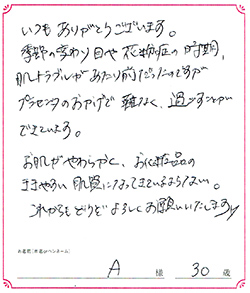 いつもありがとうございます。
季節の変わり目や花粉症の時期、
肌トラブルがあたり前だったのですが
プラセンタのおかげで難なく、過ごすことが
できています。
お肌がやわらかく、お化粧品の
ききやすい肌質になってきているみたい。
これからもどうぞよろしくお願いいたします
お名前(許或はペンネーム)
A 様 30 歳